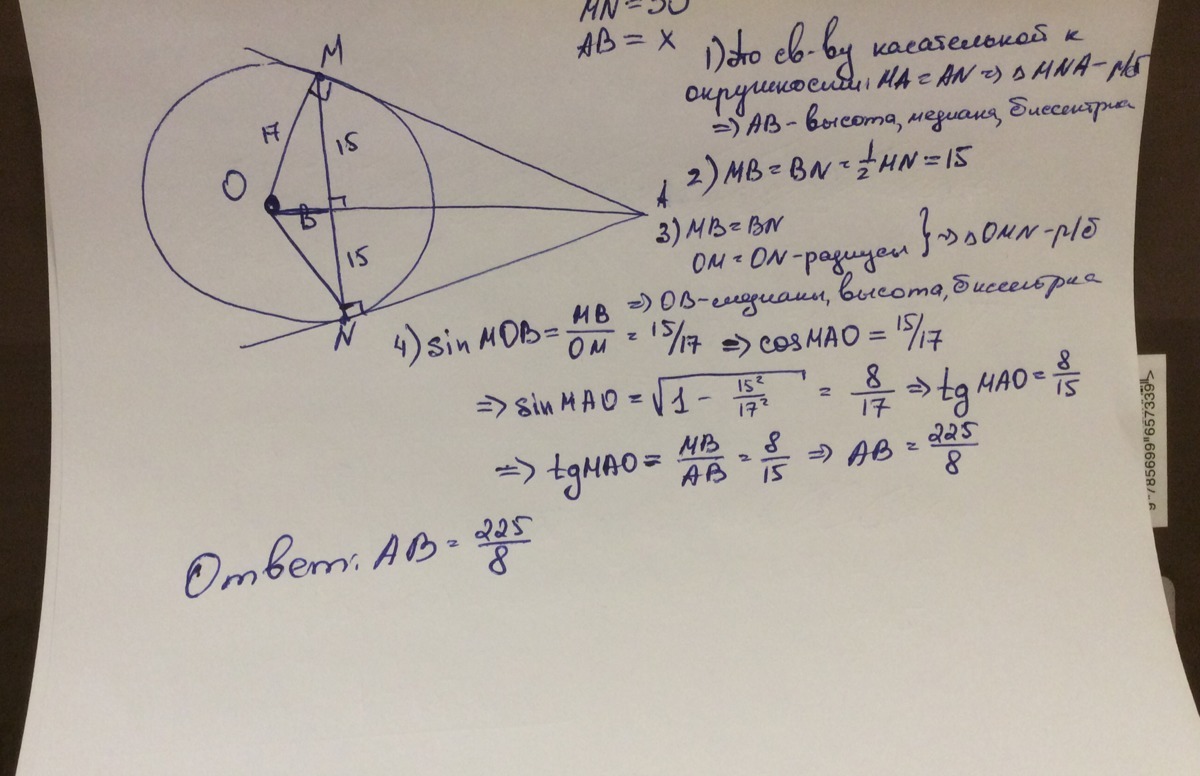 MN = 30
AB = x
1) По св-ву касательной к
окружности: MA = AN => △ MNA - р/б
=> AB - высота, медиана, биссектриса
2) MB = BN = 1/2 MN = 15
3) MB = BN
OM = ON - радиусы } => △ OMN - р/б
=> OB - медиана, высота, биссектриса
4) sin MOB = MB/OM = 15/17 => cos MAO = 15/17
=> sin MAO = √(1 - 15²/17²) = 8/17 => tg MAO = 8/15
=> tg MAO = MB/AB = 8/15 => AB = 225/8
Ответ: AB = 225/8
M
17
15
O
B
A
15
N
9"785699"657339">